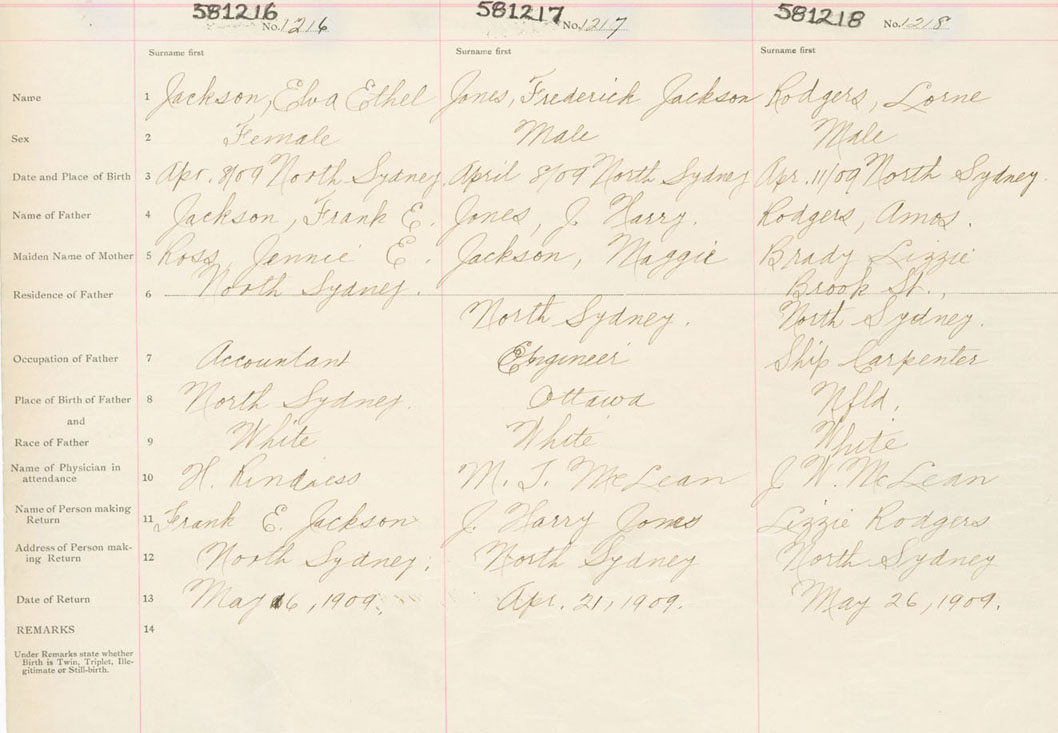 581216 581217 581218
No. 1216 No. 1217 No. 1218
Surname first Surname first Surname first
Name 1 Jackson, Elva Ethel Jones, Frederick Jackson Rodgers, Lorne
Sex 2 Female Male Male
Date and Place of Birth 3 Apr. 8/09 North Sydney. April 8/09 North Sydney Apr. 11/09 North Sydney.
Name of Father 4 Jackson, Frank E. Jones, J. Harry. Rodgers, Amos.
Maiden Name of Mother 5 Ross, Jennie E. Jackson, Maggie Brady Lizzie
Residence of Father 6 North Sydney. Brook St.,
North Sydney. North Sydney.
Occupation of Father 7 Accountant Engineer Ship Carpenter
Place of Birth of Father 8 North Sydney. Ottawa Nfld.
and
Race of Father 9 White White White
Name of Physician in
attendance 10 H. M. J. McLean J. W. McLean
Name of Person making
Return 11 Frank E. Jackson J. Harry Jones Lizzie Rodgers
Address of Person mak-
ing Return 12 North Sydney. North Sydney North Sydney
Date of Return 13 May 6, 1909. Apr. 21, 1909. May 26, 1909.
REMARKS 14
Under Remarks state whether
Birth is Twin, Triplet, Ille-
gitimate or Still-birth.